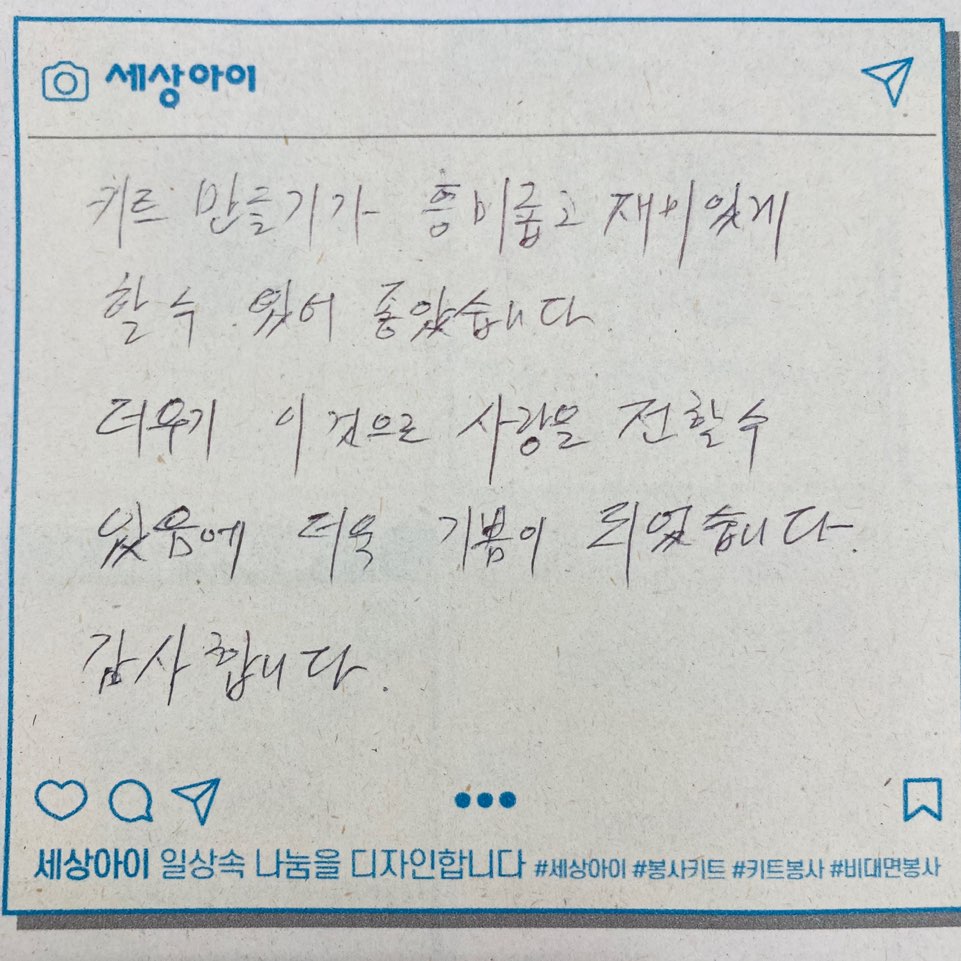 세상아이
키트 만들기가 흥미롭고 재미있게
할 수 있어 좋았습니다
더우기 이것으로 사랑을 전할 수
있음에 더욱 기쁨이 되었습니다.
감사합니다.
세상아이 일상속 나눔을 디자인합니다 #세상아이 #봉사키트 #키트봉사 #비대면봉사